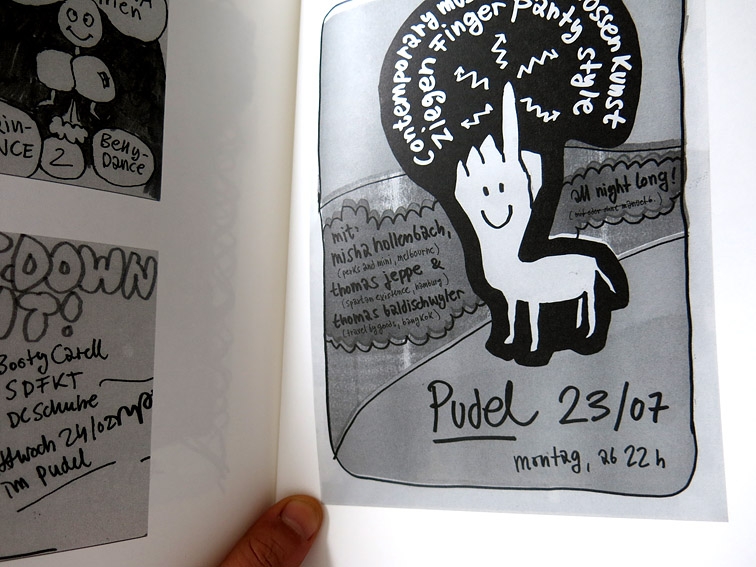 men
in-
NCE
2
Belly-
Dance
DOWN
IT!
Booty Carell
SDFKT
DC Schuhe
ttwoch 24/02
im pudel
Contemporary
ossen Kunst
Ziegen Finger Panty Style
all night long!
mit:
misha hollenbach,
(perks and mini, melbourne)
thomas jeppe &
(spartan existence, hamburg)
thomas baldischwyler
(travel by goods, bangkok)
Pudel 23/07
montag, ab 22 h